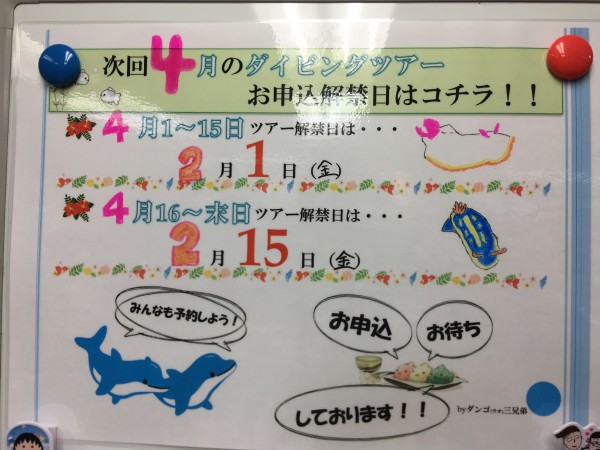 次回4月のダイビングツアー
お申込解禁日はコチラ！！
4月1～15日ツアー解禁日は・・・
2月1日(金)
4月16～末日ツアー解禁日は・・・
2月15日(金)
みんなも予約しよう！
お申込
お待ち
しております！！
byダンゴ三兄弟